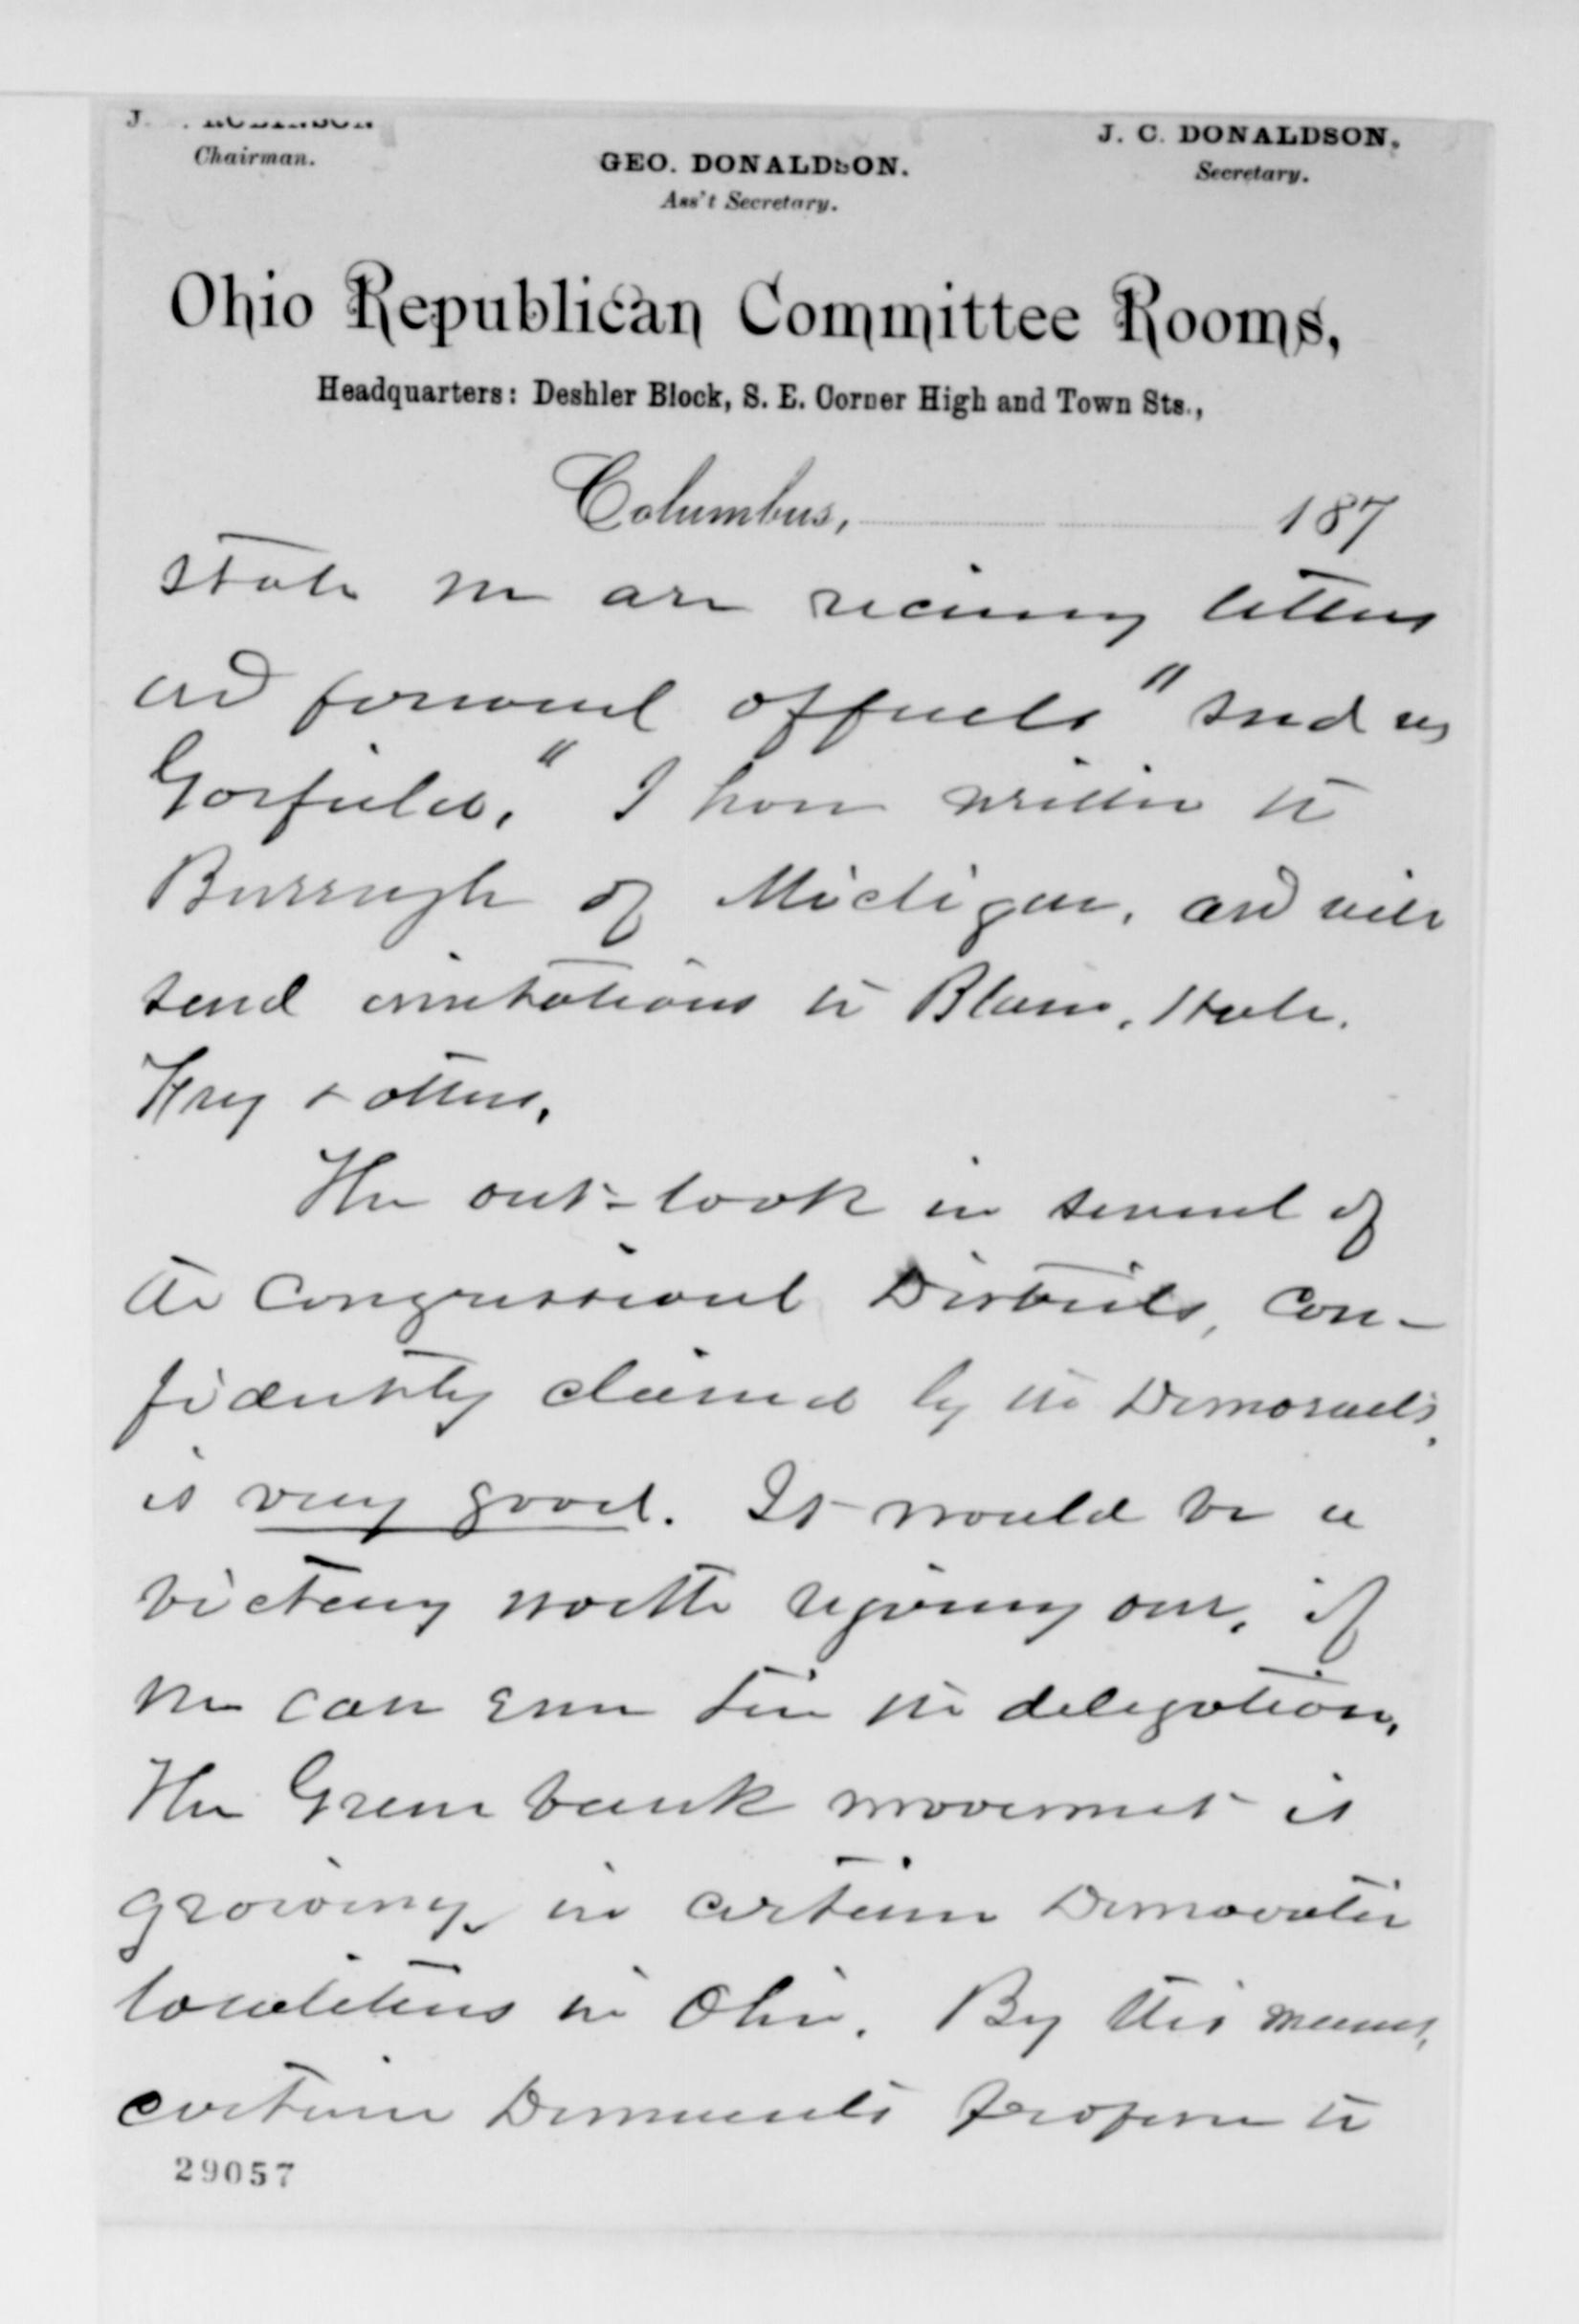 J. . ROBINSON
Chairman.
GEO. DONALDSON.
Ass't Secretary.
J. C. DONALDSON.
Secretary.
Ohio Republican Committee Rooms,
Headquarters: Deshler Block, S. E. Corner High and Town Sts.,
Columbus, 187
State we are receiving letters
and personal appeals "send us
Garfield." I have written to
Burrough of Michigan, and will
send invitations to Blaine, Hale,
Frye & others.
The out-look in several of
the Congressional Districts, con-
fidently claimed by the Democrats,
is very good. It would be a
victory worth rejoicing over, if
we can even tie the delegation.
The Green back movement is
growing in certain Democratic
localities in Ohio. By this means,
certain Democrats propose to
29057